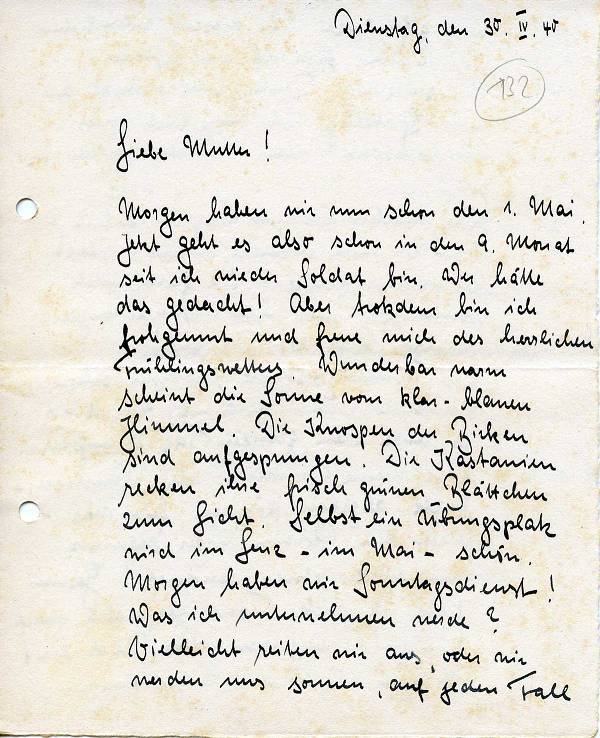 Dienstag, den 30. IV. 40
132
Liebe Mutter!
Morgen haben wir nun schon den 1. Mai.
Jetzt geht es also schon in den 9. Monat
seit ich wieder Soldat bin. Wer hätte
das gedacht! Aber trotzdem bin ich
frohgemut und freue mich des herrlichen
Frühlingswetters. Wunderbar warm
scheint die Sonne vom klar-blauen
Himmel. Die Knospen der Birken
sind aufgesprungen. Die Kastanien
recken ihre frisch grünen Blättchen
zum Licht. Selbst ein Übungsplatz
wird im Lenz - im Mai - schön.
Morgen haben wir Sonntagsdienst!
Was ich unternehmen werde?
Vielleicht reiten wir aus, oder wir
werden uns sonnen, auf jeden Fall